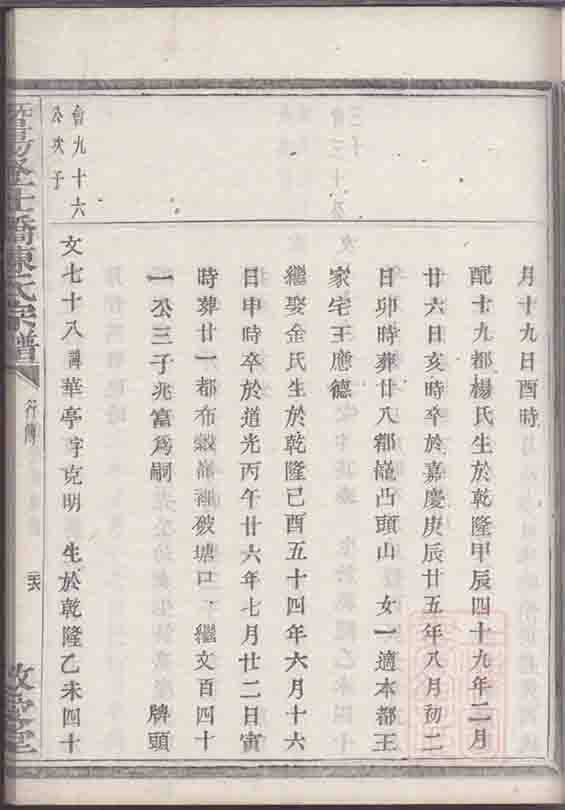 月十九日酉時
配十九都楊氏生於乾隆甲辰四十九年二月
廿六日亥時卒於嘉慶庚辰廿五年八月初二
日卯時葬廿八都嶺凸頭山 女一適本都王
家宅王應德
繼娶金氏生於乾隆己酉五十四年六月十六
日申時卒於道光丙午廿六年七月廿二日寅
時葬廿一都布穀嶺裡破塘口 繼文百四十
一公三子兆富爲嗣 牌頭
會九十六
公次子
文七十八諱華亭字克明 生於乾隆乙未四十
橋陳氏宗譜
行傳